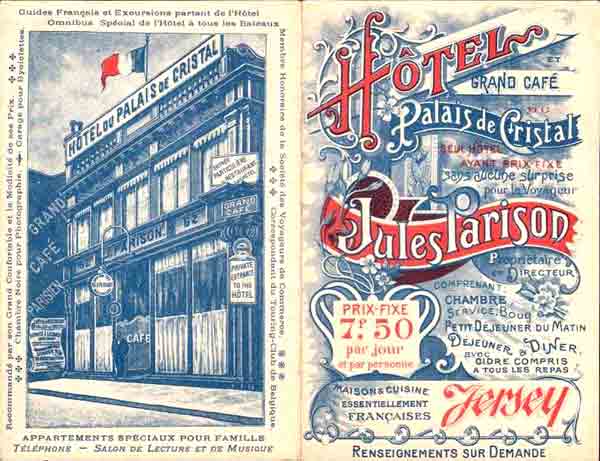 Guides Français et Excursions partant de l'Hôtel
Omnibus Spécial de l'Hôtel à tous les Bateaux
Recommandé par son Grand Confortable et la Modicité de ses Prix.
Chambre Noire pour Photographie. Garage pour Byciclettes.
HÔTEL DU PALAIS DE CRISTAL
ENTRÉE
PARTICULIÈRE
RESTAURANT
HÔTEL
GRAND
CAFÉ
GRAND
CAFÉ
PARISIEN
PARISON
PRIVATE
ENTRANCE
TO THE
HÔTEL
CAFÉ
Membre Honoraire de la Société des Voyageurs de Commerce.
Correspondant du Touring-Club de Belgique.
APPARTEMENTS SPÉCIAUX POUR FAMILLE
TÉLÉPHONE — SALON DE LECTURE ET DE MUSIQUE
HÔTEL
ET
GRAND CAFÉ
DU
Palais de Cristal
SEUL HÔTEL
AYANT PRIX-FIXE
sans aucune surprise
pour le Voyageur
Jules Parison
Propriétaire
ET DIRECTEUR
COMPRENANT:
CHAMBRE
SERVICE, Boug
PETIT DEJEUNER DU MATIN
DEJEUNER & DINER,
AVEC CIDRE COMPRIS
A TOUS LES REPAS
PRIX-FIXE
7f. 50
par jour
et par personne
MAISON & CUISINE
ESSENTIELLEMENT
FRANÇAISES
Jersey
RENSEIGNEMENTS SUR DEMANDE